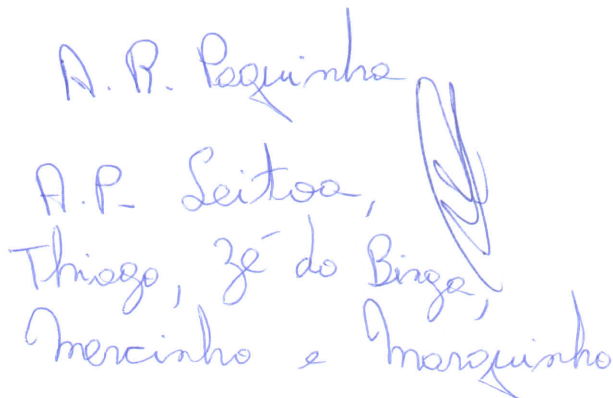 A. R. Paquinha
A.P- Leitoa,
Thiago, Zé do Binga,
Marcinho e Marquinho